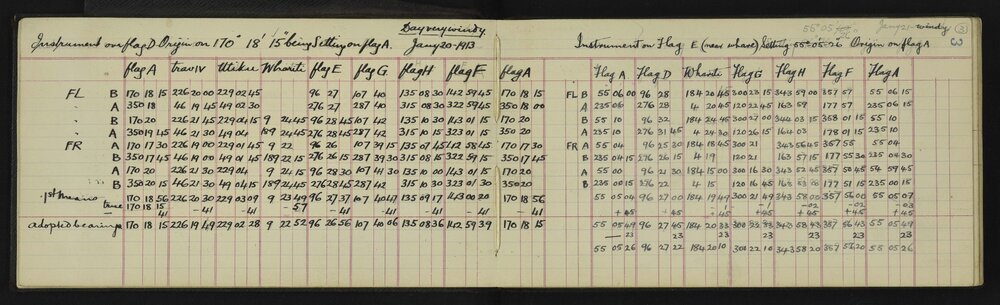 Day very windy.
Instrument over flag D Origin on 170° 18' 15" being Setting on flag A. Jany 20-1913
flag A trav IV Utiku Whariti flag E flag G flag H flag F flag A
FL B 170 18 15 226 20 00 229 02 45 96 27 107 40 135 08 30 142 59 45 170 18 15
A 350 18 46 19 45 49 02 30 276 27 287 40 315 08 30 322 59 45 350 18 00
B 170 20 226 21 45 229 04 15 9 24 45 96 28 45 107 42 135 10 30 143 01 15 170 20
A 350 19 45 46 21 30 49 04 189 24 45 276 28 45 287 42 315 10 15 323 01 15 350 20
FR A 170 17 30 226 19 00 229 01 45 9 22 96 26 107 39 15 135 07 45 142 58 45 170 17 30
B 350 17 45 46 19 00 49 01 45 189 22 15 276 26 15 287 39 30 315 08 15 322 59 15 350 17 45
A 170 20 226 21 30 229 04 9 24 15 96 28 30 107 41 30 135 10 00 143 01 15 170 20
B 350 20 15 46 21 30 49 04 15 189 24 45 276 28 45 287 42 315 10 30 323 01 30 350 20
1st Means 170 18 56 226 20 30 229 03 09 9 23 49 96 27 37 107 40 47 135 09 17 143 00 20 170 18 56
true 170 18 15 -41 -41 -57 -41 -41 -41 -41 -41
-41
adopted bearings 170 18 15 226 19 49 229 02 28 9 22 52 96 26 56 107 40 06 135 08 36 142 59 39 170 18 15
55° 05' Jany 21- windy 3
Instrument on Flag E (near whare) Setting 55° 05' 26 Origin on flag A
Flag A Flag D Whariti Flag G Flag H Flag F Flag A
FL B 55 06 00 96 28 184 20 45 300 23 15 343 59 00 357 57 55 06 15
A 235 06 276 28 4 20 45 120 22 45 163 59 177 57 235 06 15
B 55 10 96 32 184 24 45 300 27 00 344 03 15 358 01 15 55 10
A 235 10 276 31 45 4 24 30 120 26 15 164 03 178 01 15 235 10
FR A 55 04 96 25 30 184 18 45 300 21 343 56 45 357 55 55 04
B 235 04 15 276 26 15 4 19 120 21 163 57 15 177 55 30 235 04 30
A 55 00 96 21 30 184 15 00 300 16 30 343 52 45 357 50 45 54 59 45
B 235 00 15 276 22 4 15 120 16 45 177 51 15 235 00 15
55 05 04 96 27 00 184 19 49 300 21 49 343 58 00 357 56 00 55 05 07
-1 -02 -02 -03
+45 +45 +45 +45 +45 +45 +45
55 05 49 96 27 45 184 20 33 300 22 33 343 58 43 357 56 43 55 05 49
-23 23 23 23 23 23 23
55 05 26 96 27 22 184 20 10 300 22 10 343 58 20 357 56 20 55 05 26